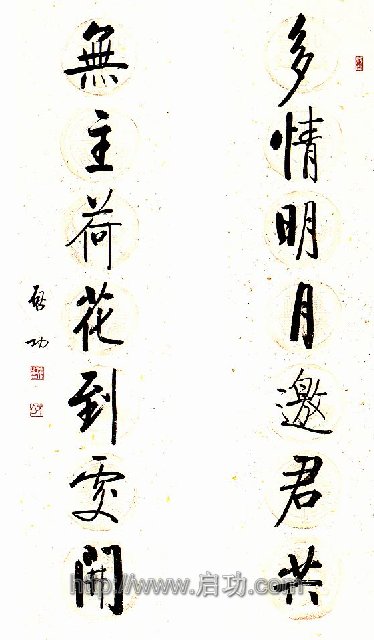 多情明月邀君共
無主荷花到處開
启功
http://www.启功.com